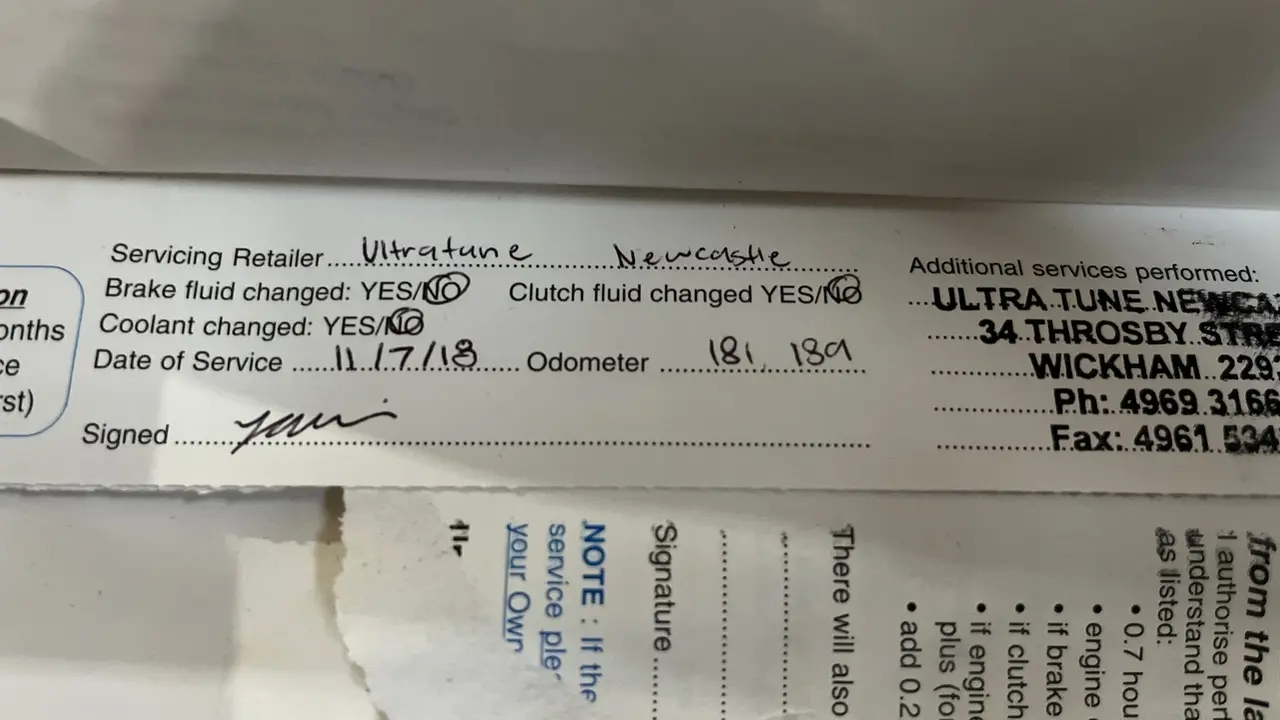 Servicing Retailer....Ultratune Newcastle
Brake fluid changed: YES/NO Clutch fluid changed YES/NO
Coolant changed: YES/NO
Date of Service ......11/7/18...... Odometer ......181, 189
Signed
Additional services performed:
ULTRA TUNE NEWCA
34 THROSBY STRE
WICKHAM 229
Ph: 4969 3166
Fax: 4961 534
on
onths
ce
rst)
from the la
I authorise per
understand tha
as listed:
• 0.7 hou
• engine
• if brake
• if clutch
• if engine
plus (fo
• add 0.2
There will also
Signature
NOTE : If the
service ple
your Own